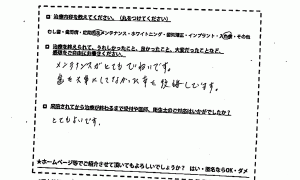 ■ 治療内容を教えてください。（丸をつけてください）
むし歯・歯周病・定期メンテナンス・ホワイトニング・歯列矯正・インプラント・入れ歯・その他
■ 治療を終えられて、うれしかったこと、良かったこと、大変だったことなど、
感想をご自由にお書きください。
メンテナンスがとてもていねいです。
歯を大事にしてなかった事を後悔してます。
■ 来院されてから治療が終わるまで受付や医師、衛生士の対応はいかがでしたか？
とてもよいです。
★ホームページ等でご紹介させて頂いてもよろしいでしょうか？ はい・匿名ならOK・ダメ